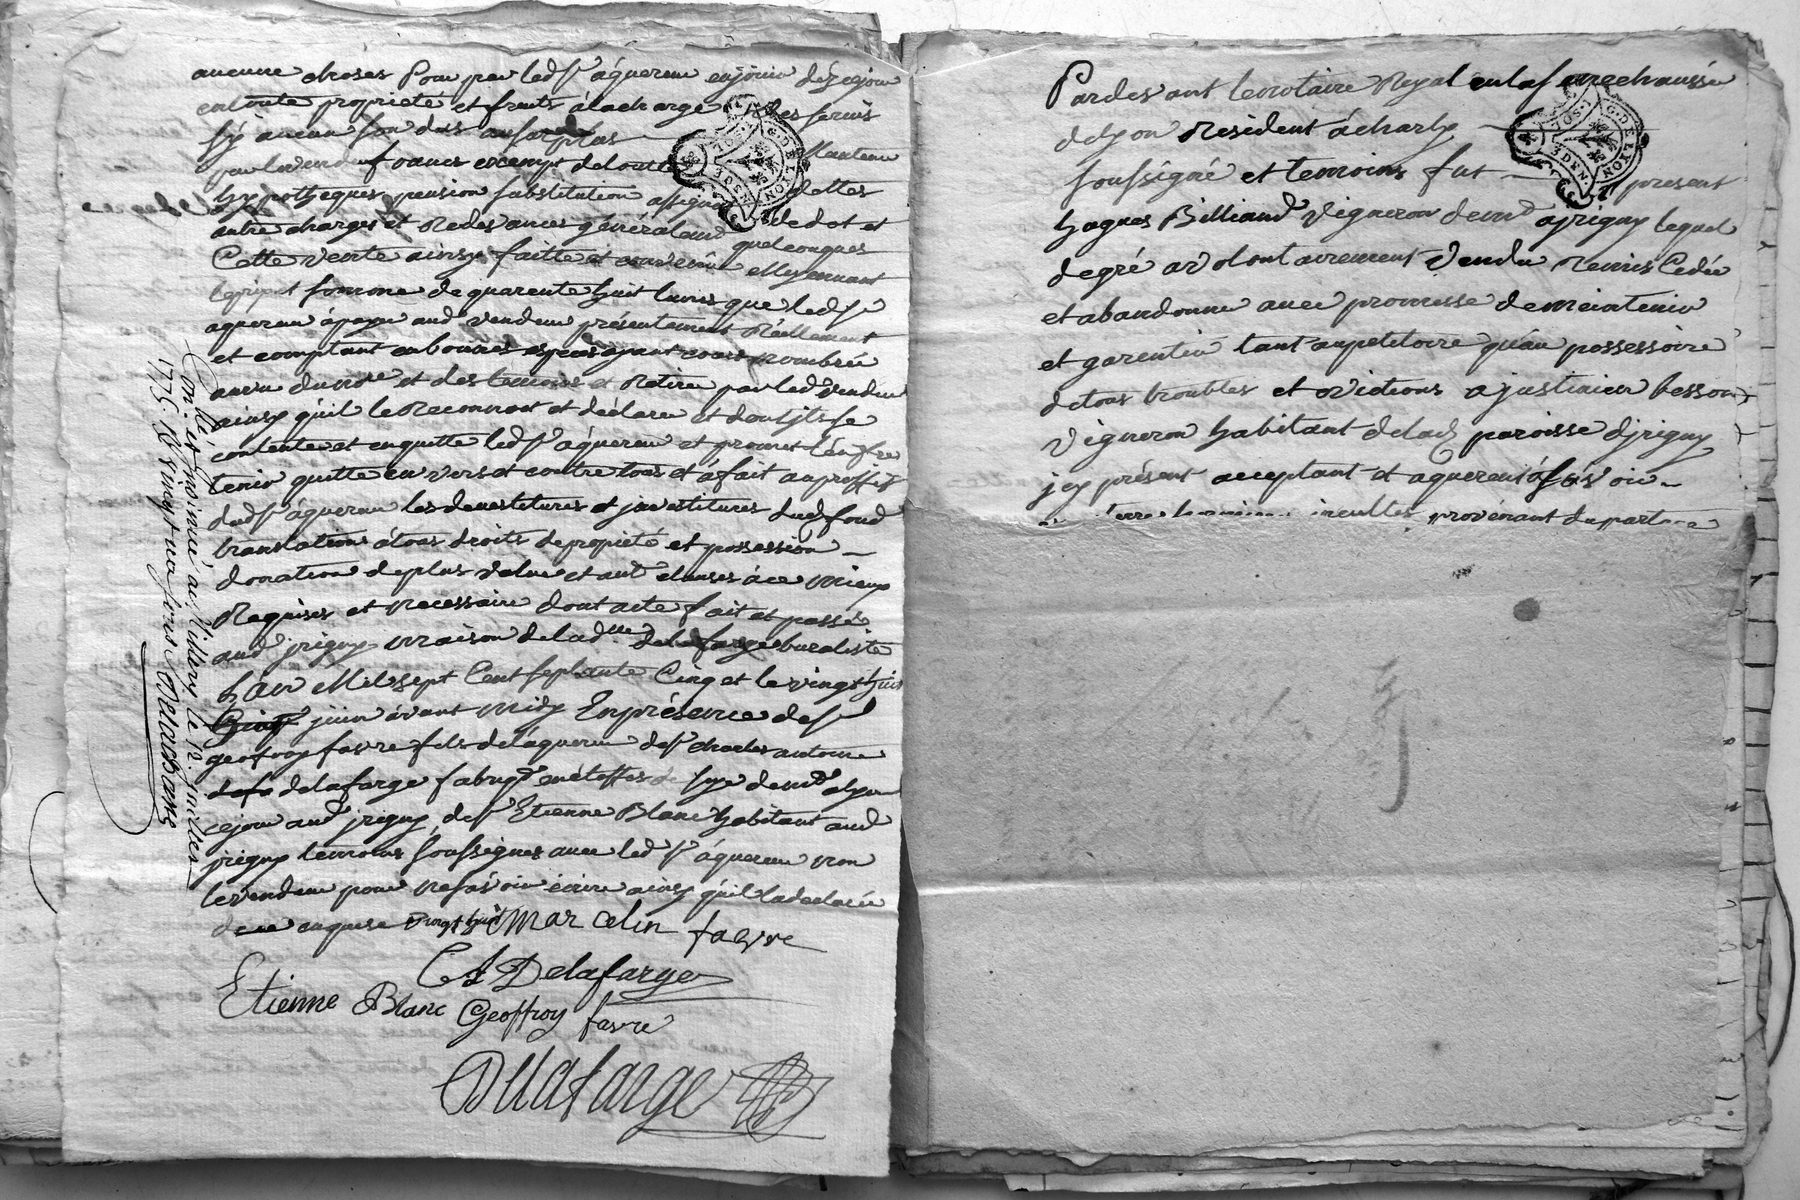 aucune choses pour par led Sr aquereur enjouir dezcejour
entoute proprieté et fruits alacharge des servis
sy aucun son dus au surplus
par le vendeur franc exempt detoutes
hypotheques pension substitution dettes
autre charges et Redevances généralement quelconques dedot et
Cette vente ainsy faitte et convenüe Moyennant
somme de quarente huit livres que led Sr
aquereur à payé aud vendeur présentement Réellement
et comptant en bonnes especes ayant cours nombrée
au vu du nore et des temoins et Retiré par led vendeur
ainsy qu'il le Reconnoit et déclare et dont il se
contente et enquitte led Sr aquereur et promet l'en
tenir quitte en vers et contre tous et à fait au proffit
dud Sr aquereur les devestitures et jnvestitures dud fond
translations à tous droits de propieté et possession
donation de plus value et aut clauses à ce Mieux
Requises et necessaire dont acte fait et passé
aud jrigny Maison de la dlle delafarge buraliste
L'an Mil sept Cent septante Cinq et le vingt huit
juin avant midy En présence de Sr
geofroy favre fils de l'aquereur de Sr charles antoine
delafarge fabriqt en étoffes de soye demt alyon
cejour aud jrigny, de Sr Etienne Blanc habitant aud
jrigny temoins soussignés avec led Sr aquereur non
le vendeur pour ne savoir écrire ainsy qu'il la declaré
de ce enquis vingt huit Marcelin favre
CA Delafarge
Etienne Blanc Geoffroy favre
Dellafarge
Con.lé et Insinué au Millery le 12 juillet
1775. R. vingt un sous Delabranne
Pardevant le notaire Royal en la senechaussée
de lyon Resident à charly
soussigné et temoins fut present
hugues Billiaud Vigneron demt a jrigny lequel
de gré a volontairement Vendu Remis Cedée
et abandonne avec promesse de meintenir
et garentir tant au petitoire qu'au possessoire
de tous troubles et Evictions a just besson
Vigneron habitant de lad paroisse d'jrigny
jcy présent acceptant et aquereur à savoir
incultes provenant du partage